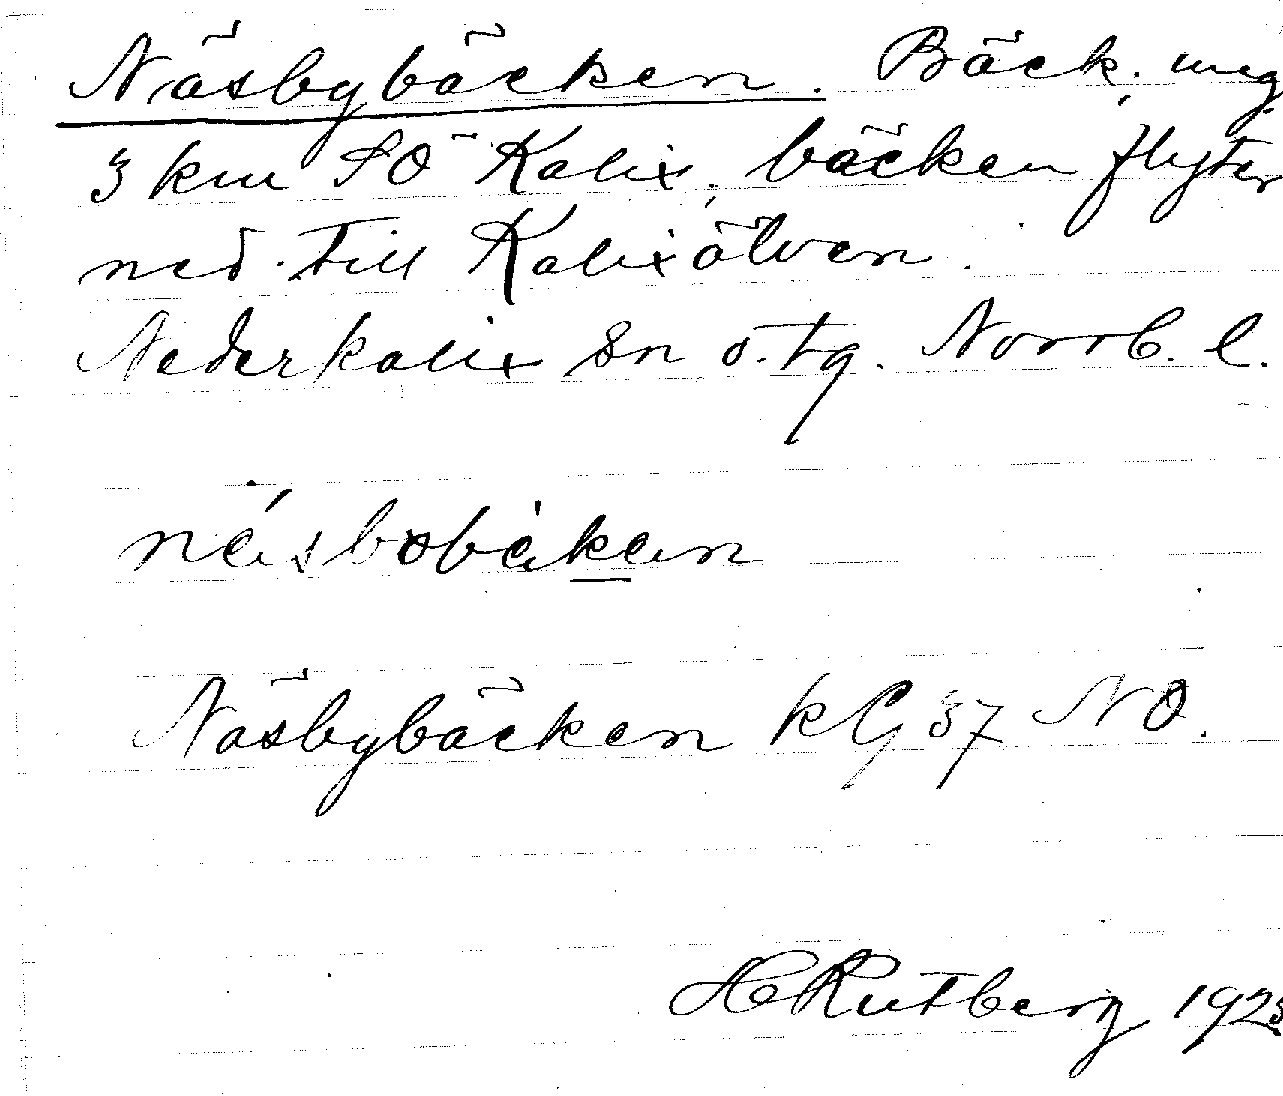 Näsbybäcken. Bäck. ung.
3 km SÖ Kalix, bäcken flyter
ned till Kalixälven.
Nederkalix sn ö. tg. Norrb. l.
Näsbybäcken kG 37 NO.
H Rutberg 1923